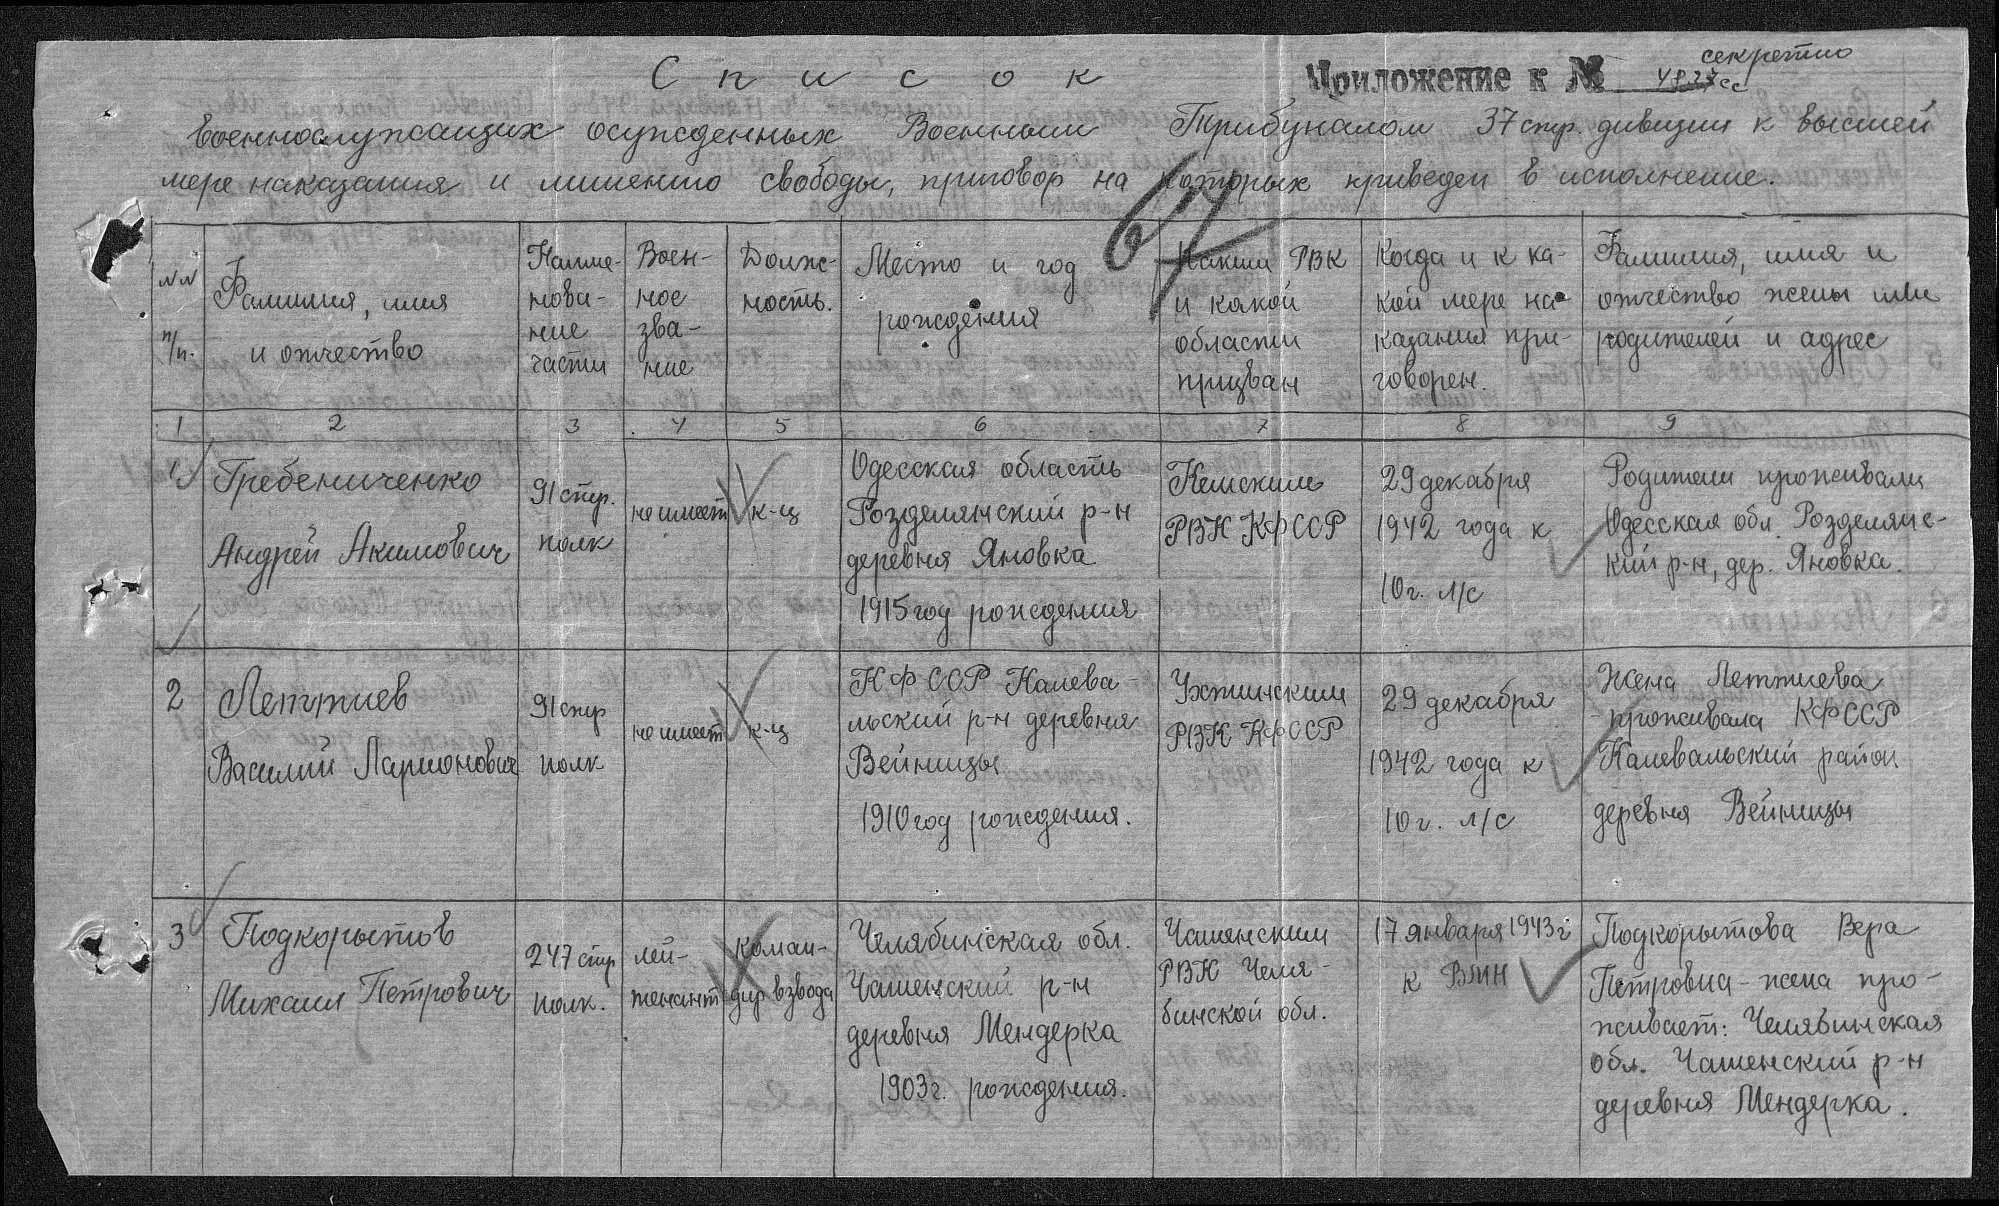 секретно
Список
Приложение к №
4827сс
военнослужащих осужденных Военным Трибуналом 37 стр. дивизии к высшей
мере наказания и лишению свободы, приговор на которых приведен в исполнение.
67
NN
п/п.
Фамилия, имя
и отчество
Наиме-
нова-
ние
части
Воен-
ное
зва-
ние
Долж-
ность.
Место и год
рождения
Каким РВК
и какой
области
призван
Когда и к ка-
кой мере на-
казания при-
говорен.
Фамилия, имя и
отчество жены или
родителей и адрес
1 2 3 4 5 6 7 8 9
1
Гребениченко
Андрей Акимович
91 стр.
полк
не имеет
к-ц
Одесская область
Розделянский р-н
деревня Яновка
1915 год рождения
Кемским
РВК КФССР
29 декабря
1942 года к
10 г. л/с
Родители проживали
Одесская обл. Розделянс-
кий р-н, дер. Яновка.
2
Леттиев
Василий Ларионович
91 стр
полк
не имеет
к-ц
КФССР Калева-
льский р-н деревня
Вейницы
1910 год рождения.
Ухтинским
РВК КФССР
29 декабря
1942 года к
10 г. л/с
Жена Леттиева
проживала КФССР
Калевальский район
деревня Вейницы
3
Подкорытов
Михаил Петрович
247 стр
полк.
лей-
тенант
Коман-
дир взвода
Челябинская обл.
Чашенский р-н
деревня Мендерка
1903 г. рождения.
Чашенским
РВК Челя-
бинской обл.
17 января 1943 г
к ВМН
Подкорытова Вера
Петровна - жена про-
живает: Челябинская
обл. Чашенский р-н
деревня Мендерка.